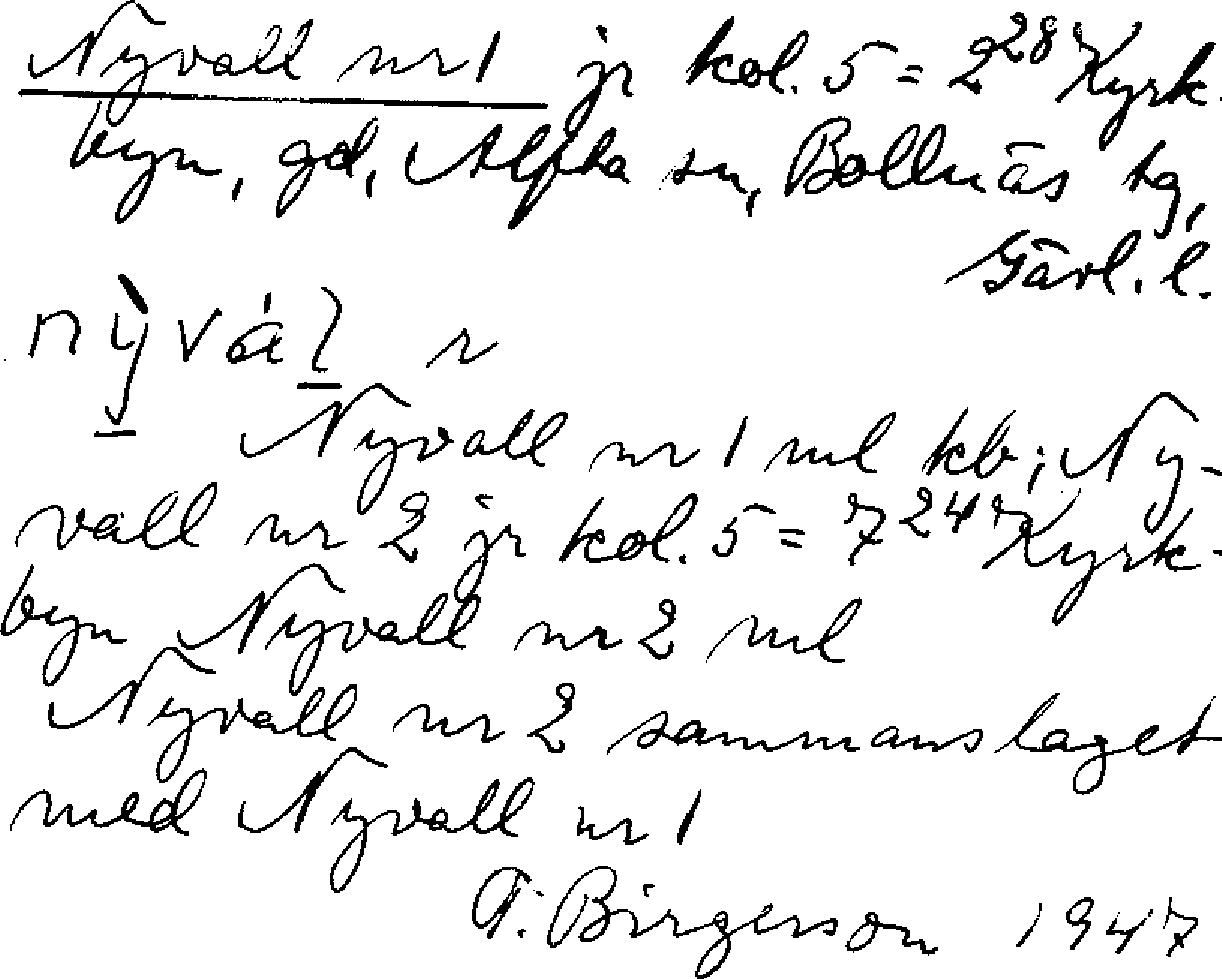 Nyvall nr 1 jr kol. 5 = 2²⁸ Kyrk-
byn, gd, Alfta sn, Bollnäs tg,
Gävl. l.
nỳvál r
Nyvall nr 1 ml kb; Ny-
vall nr 2 jr kol. 5 = 7²⁴ Kyrk-
byn Nyvall nr 2 ml
Nyvall nr 2 sammanslaget
med Nyvall nr 1
F. Birgerson 1947